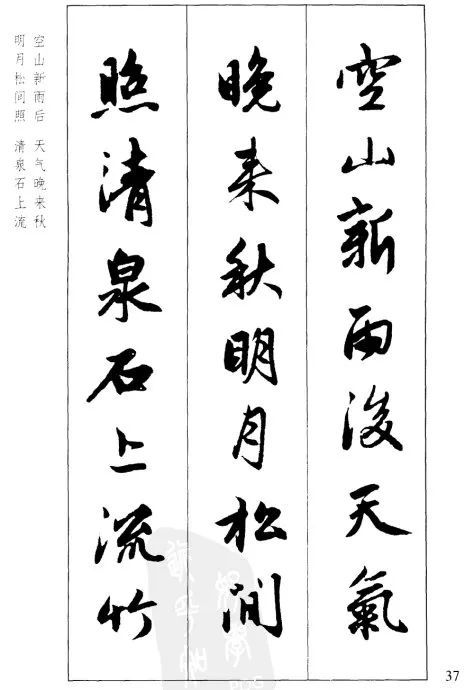 空山新雨後天氣
晚来秋明月松間
照清泉石上流竹
空山新雨后 天气晚来秋
明月松间照 清泉石上流
37